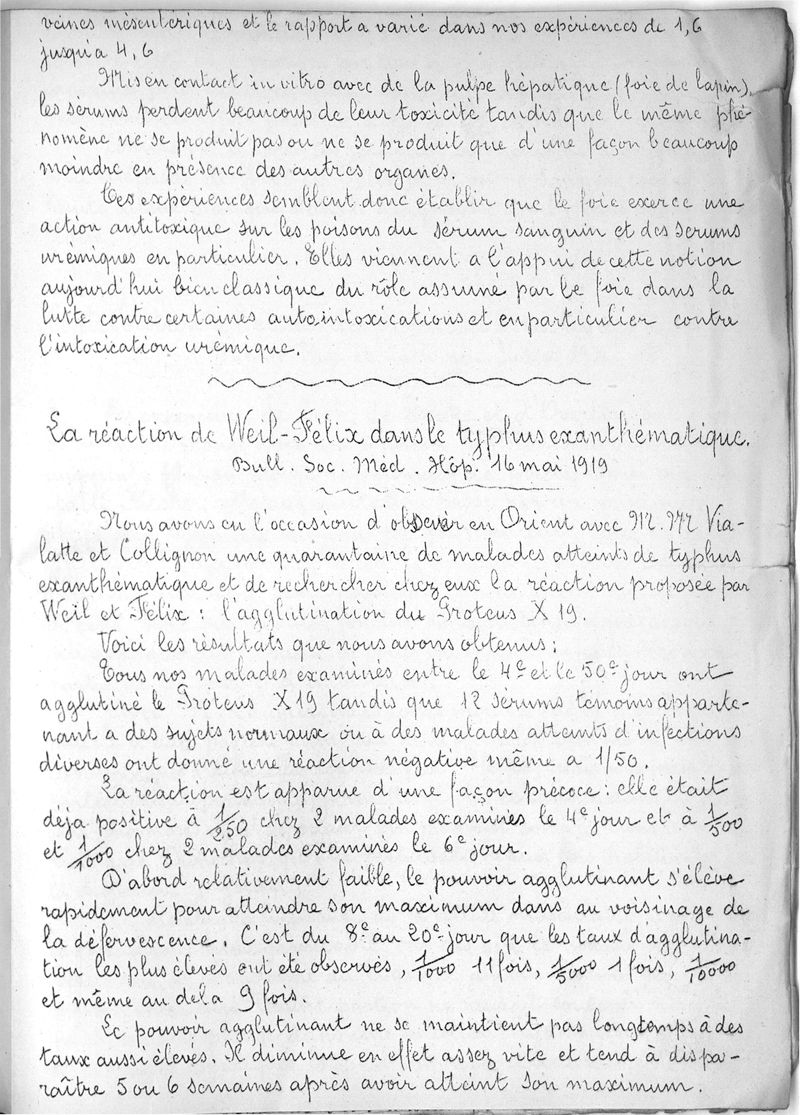 veines mésentériques et le rapport a varié dans nos expériences de 1,6
jusqu'a 4,6
Mis en contact in vitro avec de la pulpe hépatique (foie de lapin),
les sérums perdent beaucoup de leur toxicité tandis que le même phé-
nomène ne se produit pas ou ne se produit que d'une façon beaucoup
moindre en présence des autres organes.
Ces expériences semblent donc établir que le foie exerce une
action antitoxique sur les poisons du sérum sanguin et des serums
urémiques en particulier. Elles viennent a l'appui de cette notion
aujourd'hui bien classique du rôle assumé par le foie dans la
lutte contre certaines autointoxications et en particulier contre
l'intoxication urémique.
La réaction de Weil-Félix dans le typhus exanthématique.
Bull. Soc. Méd. Hôp. 16 mai 1919
Nous avons eu l'occasion d'observer en Orient avec M.M Via-
latte et Collignon une quarantaine de malades atteints de typhus
exanthématique et de rechercher chez eux la réaction proposée par
Weil et Félix : l'agglutination du Proteus X 19.
Voici les résultats que nous avons obtenus :
Tous nos malades examinés entre le 4e et le 50e jour ont
agglutiné le Proteus X19 tandis que 12 sérums témoins apparte-
nant a des sujets normaux ou à des malades atteints d'infections
diverses ont donné une réaction négative même a 1/50.
La réaction est apparue d'une façon précoce : elle était
déja positive à 1/250 chez 2 malades examinés le 4e jour et à 1/500
et 1/1000 chez 2 malades examinés le 6e jour.
D'abord relativement faible, le pouvoir agglutinant s'élève
rapidement pour atteindre son maximum dans au voisinage de
la défervescence. C'est du 8e au 20e jour que les taux d'agglutina-
tion les plus élevés ont été observés, 1/1000 11 fois, 1/5000 1 fois, 1/10000
et même au dela 9 fois.
Le pouvoir agglutinant ne se maintient pas longtemps à des
taux aussi élevés. Il diminue en effet assez vite et tend à dispa-
raître 5 ou 6 semaines après avoir atteint son maximum.